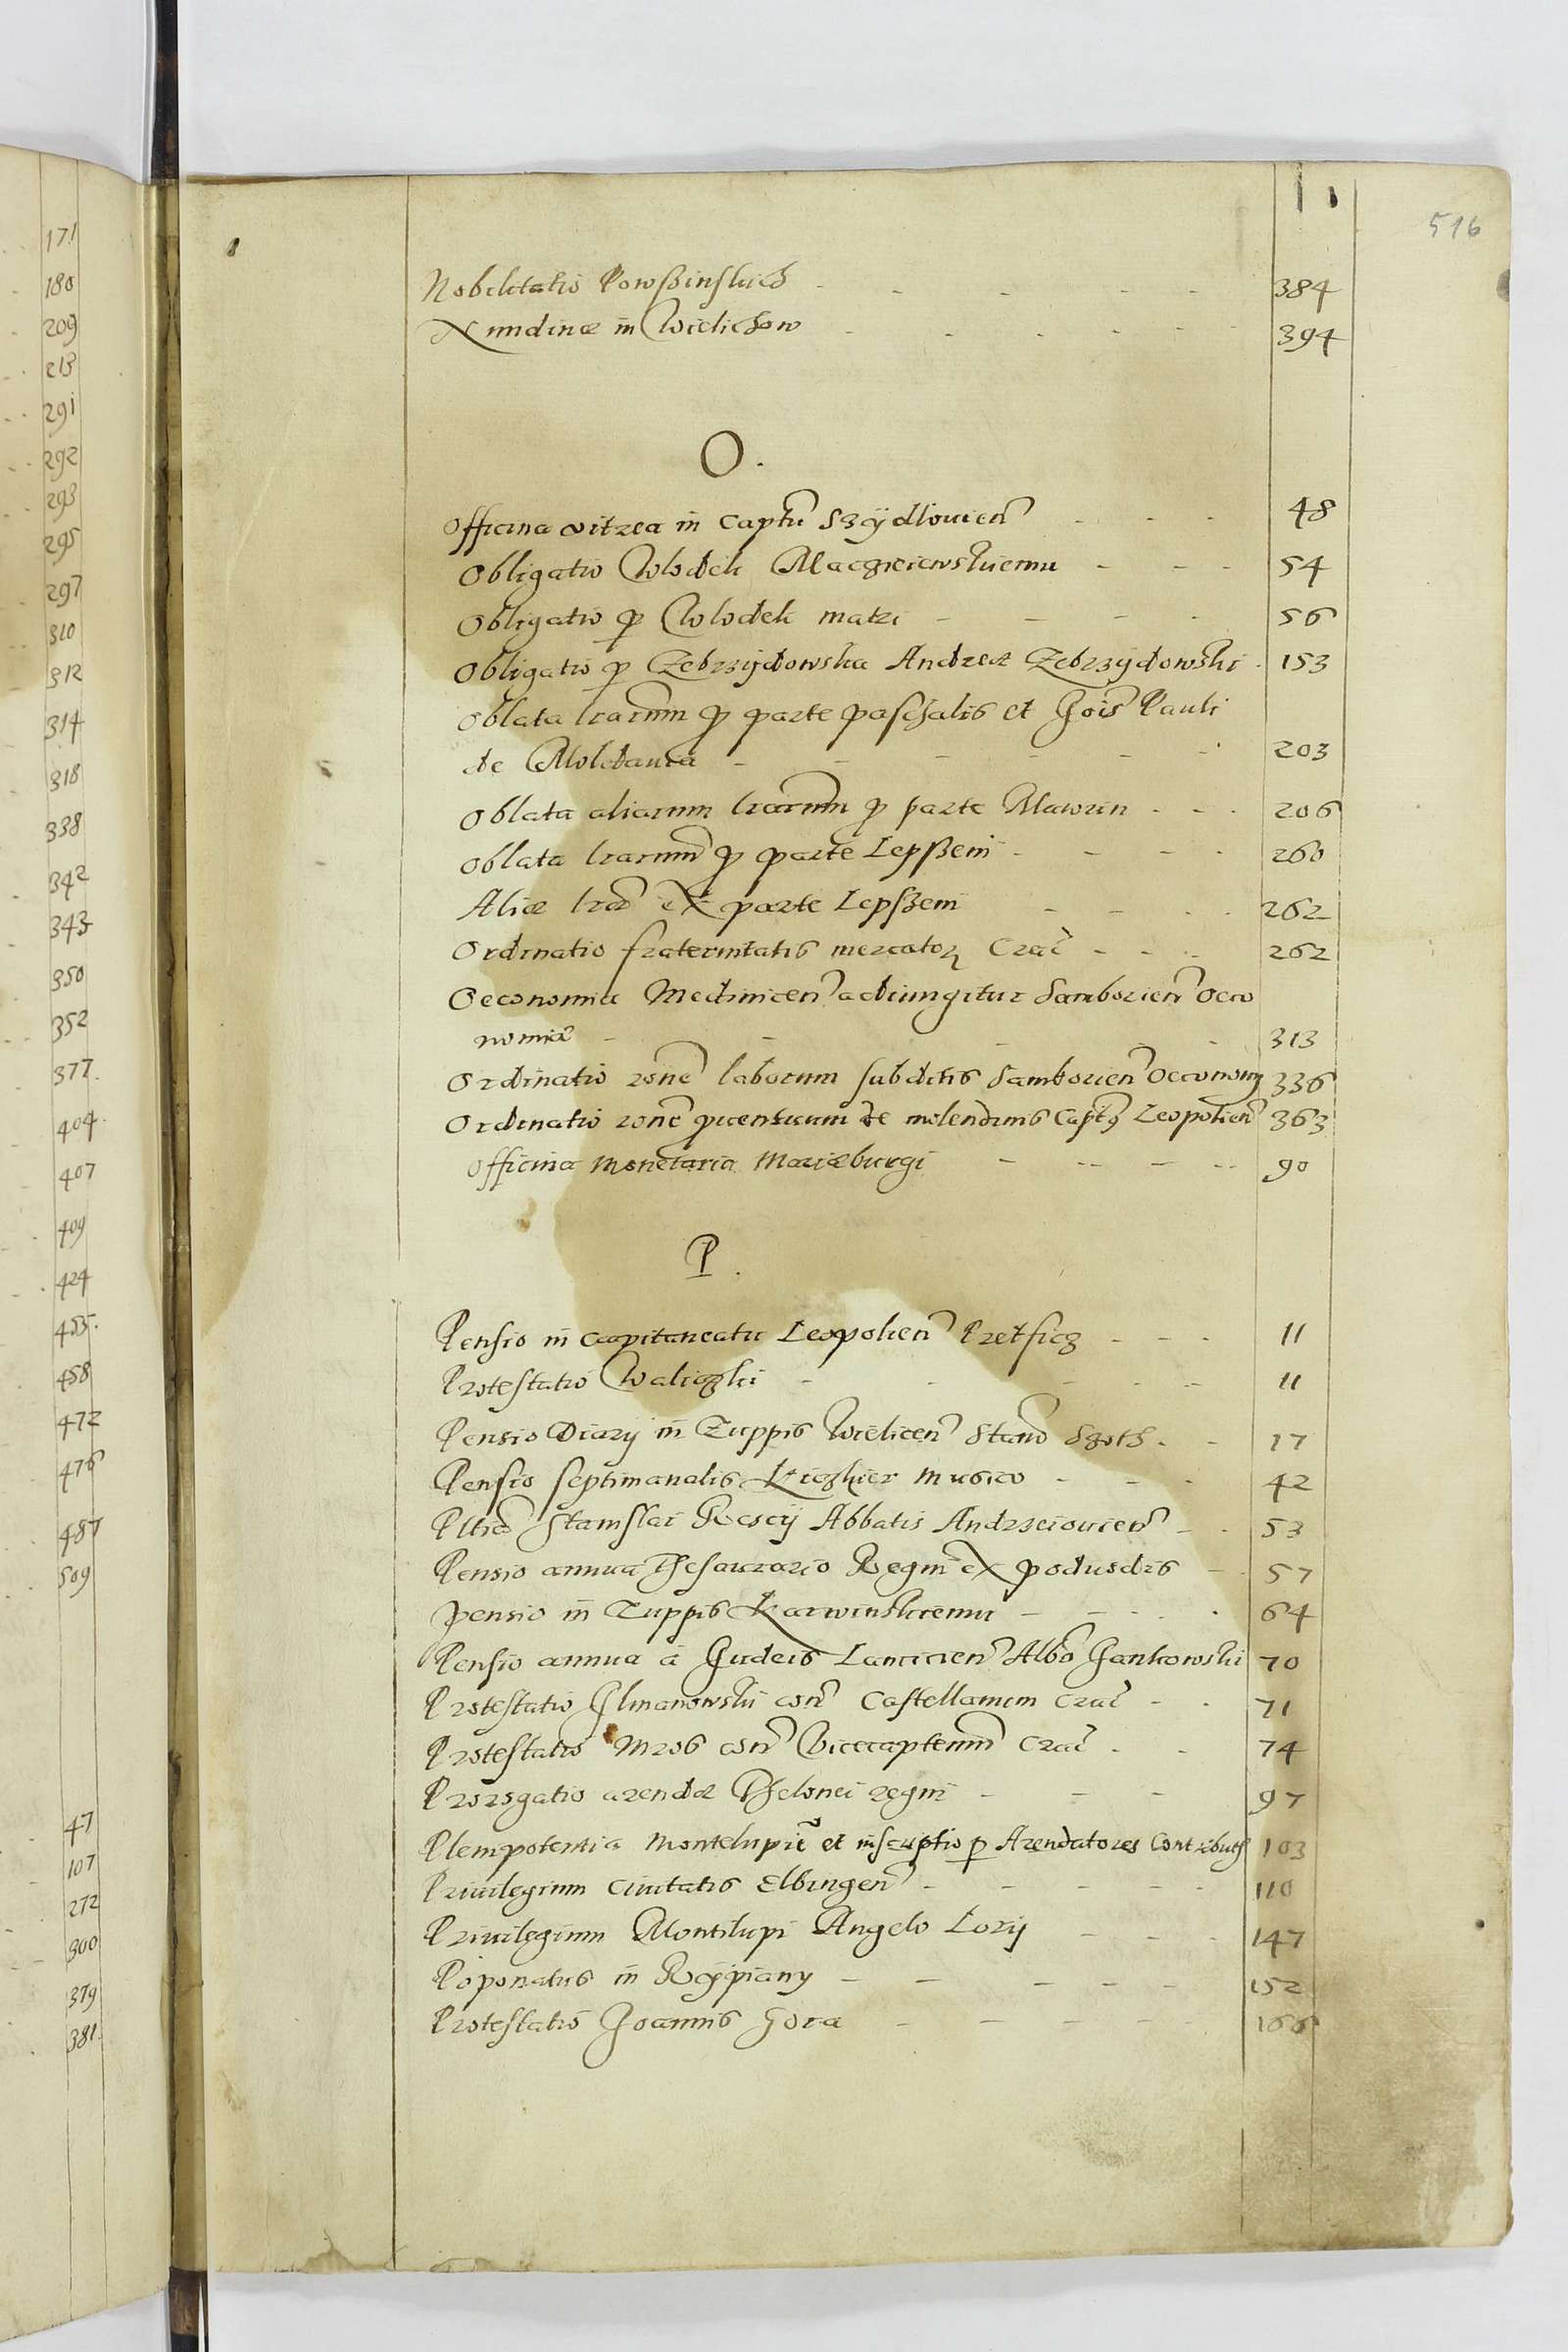 171
180
209
213
291
292
293
295
297
310
312
314
318
338
342
343
350
352
377.
404.
407
409
424
455.
458
472
476
487
509
47
107
272
300
379
381.
516
Nobilitatio Powßinskich - - - - - 384
Nundinæ in Wielichow - - - - - 394
O.
Officina vitrea in Captu Szÿdlouien - - - 48
Obligatio Wolodek Maczieiewskiemu - - - 54
Obligatio p Wolodek matri - - - - 56
Obligatio p Zebrzÿdowska Andreæ Zebrzÿdowski . 153
Oblata lrarum p parte paschalis et Jois Pauli
de Moldauia - - - - - - 203
Oblata aliarum lrarum p parte Mawrin - - - 206
Oblata lrarum p parte Lepßeni - - - - 260
Aliæ lræ ex parte Lepszeni - - - - 262
Ordinatio fraternitatis mercator Crac - - - 262
Oeconomia Medinicen adiungitur Samborien Oeco
nomiæ - - - - - 313
Ordinatio rone laborum subditis Samborien Oeconom 336
Ordinatio rone prouentuum de molendinis Capt Leopolien 363
Officina Monetaria Mariæburgi - - - - 90
P.
Pensio in capitaneatu Leopolien Pretficz - - - 11
Protestatio Waliczki - - - - - 11
Pensio Diarÿ in Zuppis Wielicen Stano Szoth . - 17
Pensio septimanalis Kiczkier Musico - - - 42
Pltio Stanislai Rescÿ Abbatis Andrzeiouien - . 53
Pensio annua Thesaurario Regni ex podusdts - . 57
Pensio in Zuppis Karwinskiemu - - - - . 64
Pensio annua a Judeis Lancicien Albo Jankowski 70
Protestatio Glinanowski con Castellanum Crac - . 71
Protestatio Mros con Vicecaptenum Crac . - 74
Prorogatio arendæ Thelonei regni - - - 97
Plenipotentia Montelupic et inscriptio p Arendatores Contribut 103
Priuilegium Ciuitatis Elbingen - - - - - 110
Priuilegium Montilupi Angelo Lorÿ - - - 147
Poponatus in Rÿpiany - - - - - 152
Protestatio Joannis Gora - - - - - 166